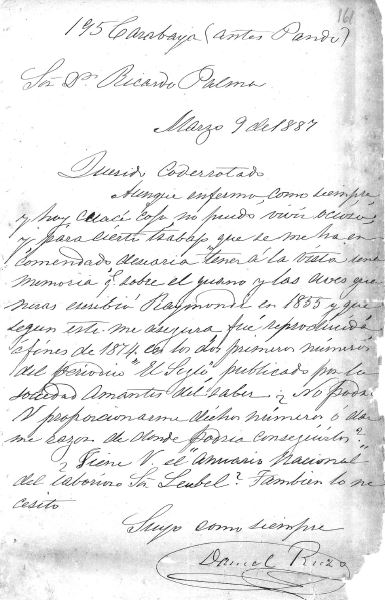 161
195 Carabaya (antes Pando)
Sor Dn Ricardo Palma
Marzo 9 de 1887
Querido Coderrotado
Aunque enfermo como siempre
y hoy cuasi cojo no puedo vivir ocioso
y para cierto trabajo que se me ha en
comendado desearia tener a la vista una
memoria q. sobre el guano y las aves que
neras escribió Raymondi en 1855 y que
segun este me asegura fué reproducida
á fines de 1874 en los dos primeros números
del periodico "El Siglo" publicado por la
sociedad Amantes del saber ¿No podra
V proporcionarme dichos números ó dar
me razon de donde podria conseguirlos?
¿Tiene V. el "Anuario Nacional"
del laborioso Sor Leubel? Tambien lo ne
cesito
Suyo como siempre
Daniel Ruzo